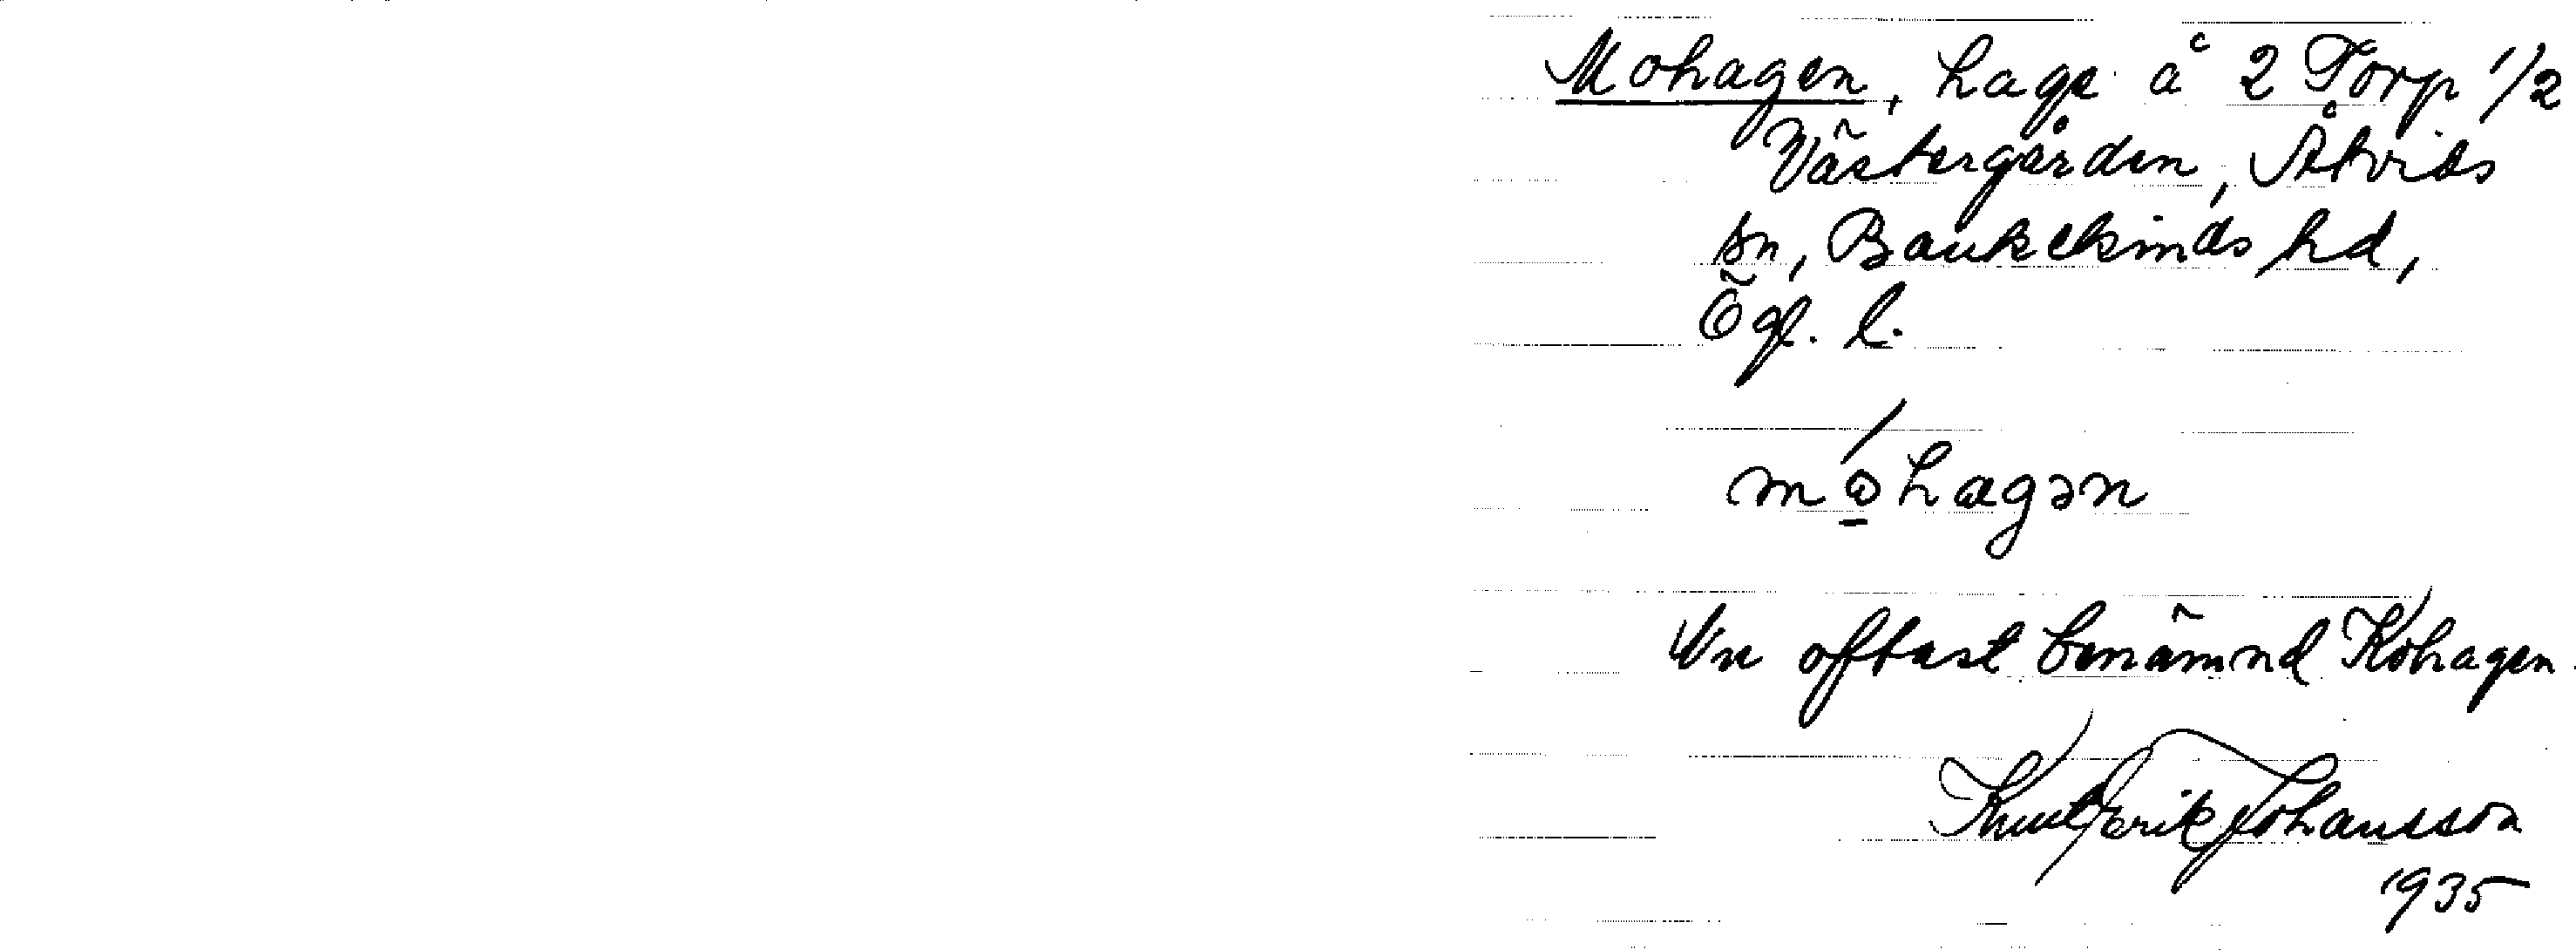 Mohagen, hage å 2 Torp 1/2
Västergården, Åtvids
sn, Bankekinds hd,
Ögl. l.
móhagən
Nu oftast benämnd Kohagen.
Knut Erik Johansson
1935